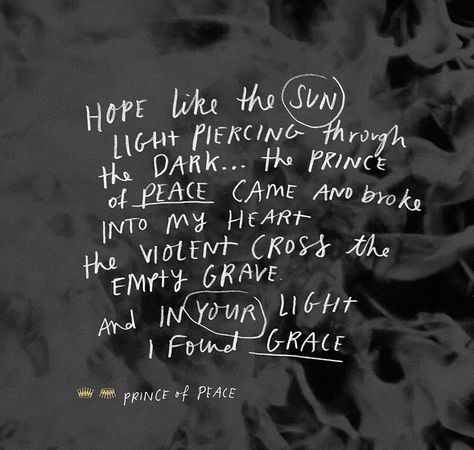 HOPE like the SUN
LIGHT PIERCING through
the DARK... the PRINCE
of PEACE CAME AND broke
INTO MY HEART
the VIOLENT CROSS the
EMPTY GRAVE.
And IN YOUR LIGHT
I Found GRACE
PRINCE of PEACE